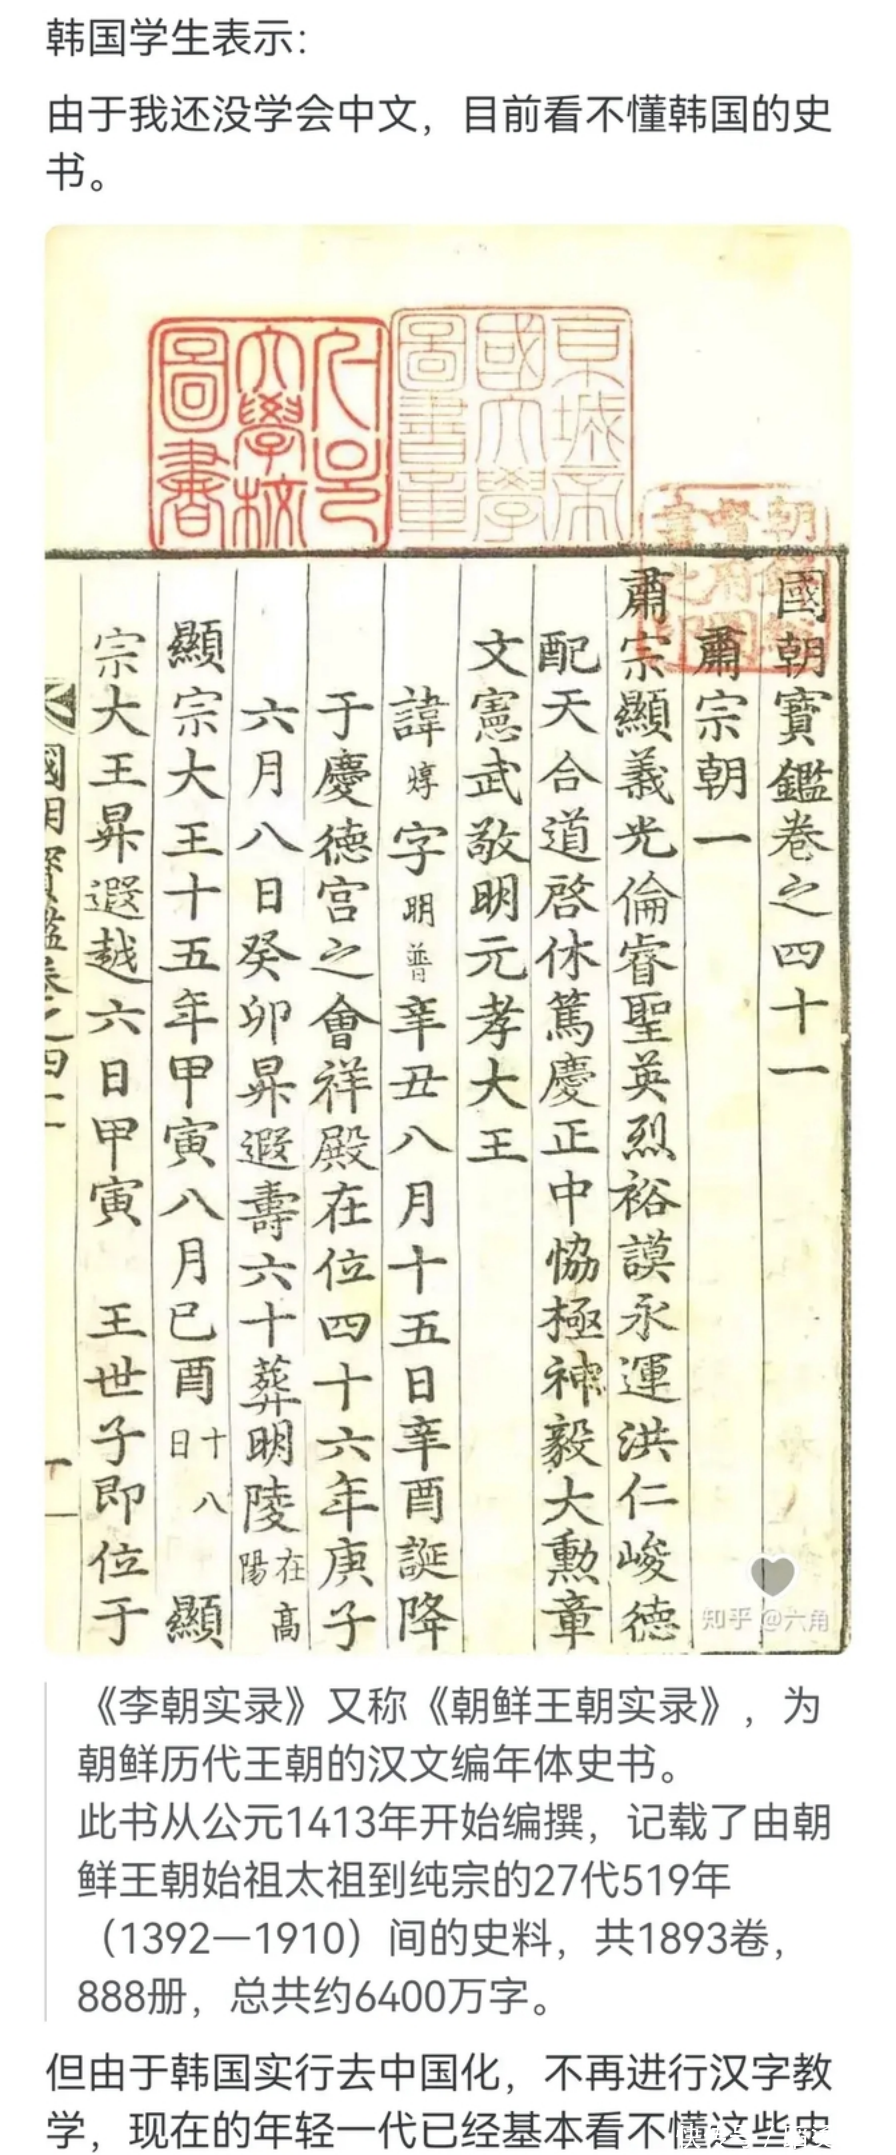 韩国学生表示:
由于我还没学会中文，目前看不懂韩国的史
书。
京城帝
國大學
圖書章
大學校
圖書
朝鮮總
督府圖
書之印
國朝寶鑑卷之四十一
肅宗朝一
肅宗顯義光倫睿聖英烈裕謨永運洪仁峻德
配天合道啓休篤慶正中恊極神毅大勳章
文憲武敬明元孝大王
諱焞字明普辛丑八月十五日辛酉誕降
于慶德宮之會祥殿在位四十六年庚子
六月八日癸卯昇遐壽六十葬明陵在高陽
顯宗大王十五年甲寅八月己酉十八日顯
宗大王昇遐越六日甲寅 王世子即位于
國朝寶鑑卷之四十一
一
知乎 @六角
《李朝实录》又称《朝鲜王朝实录》，为
朝鲜历代王朝的汉文编年体史书。
此书从公元1413年开始编撰，记载了由朝
鲜王朝始祖太祖到纯宗的27代519年
（1392—1910）间的史料，共1893卷，
888册，总共约6400万字。
但由于韩国实行去中国化，不再进行汉字教
学，现在的年轻一代已经基本看不懂这些史